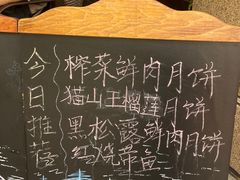 今日推荐
榨菜鲜肉月饼
猫山王榴莲月饼
黑松露鲜肉月饼
红烧带鱼